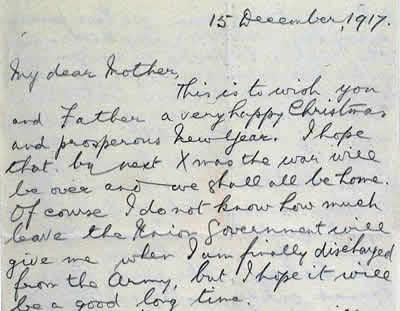 15 December, 1917.
My dear Mother,
This is to wish you
and Father a very happy Christmas
and prosperous New Year. I hope
that by next Xmas the war will
be over and we shall all be home.
Of course I do not know how much
leave the Union Government will
give me when I am finally discharged
from the Army, but I hope it will
be a good long time.